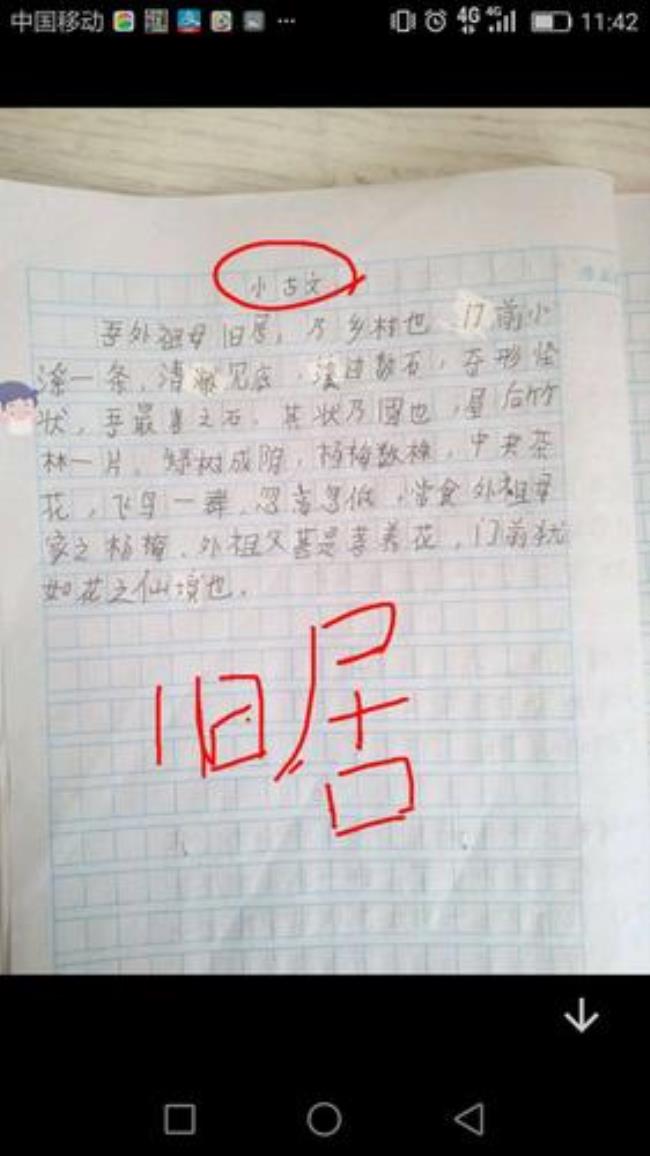 中国移动 ... 4G 4G 11:42
小古文
吾外祖母旧居，乃乡村也，门前小
溪一条，清澈见底，数石，奇形怪
状，吾最喜之石，其状乃圆也，屋后竹
林一片，绿树成阴，杨梅数株，中央茶
花，飞鸟一群，忽高忽低，常食外祖母
家之杨梅，外祖父甚是喜养花，门前犹
如花之仙境也。
旧居